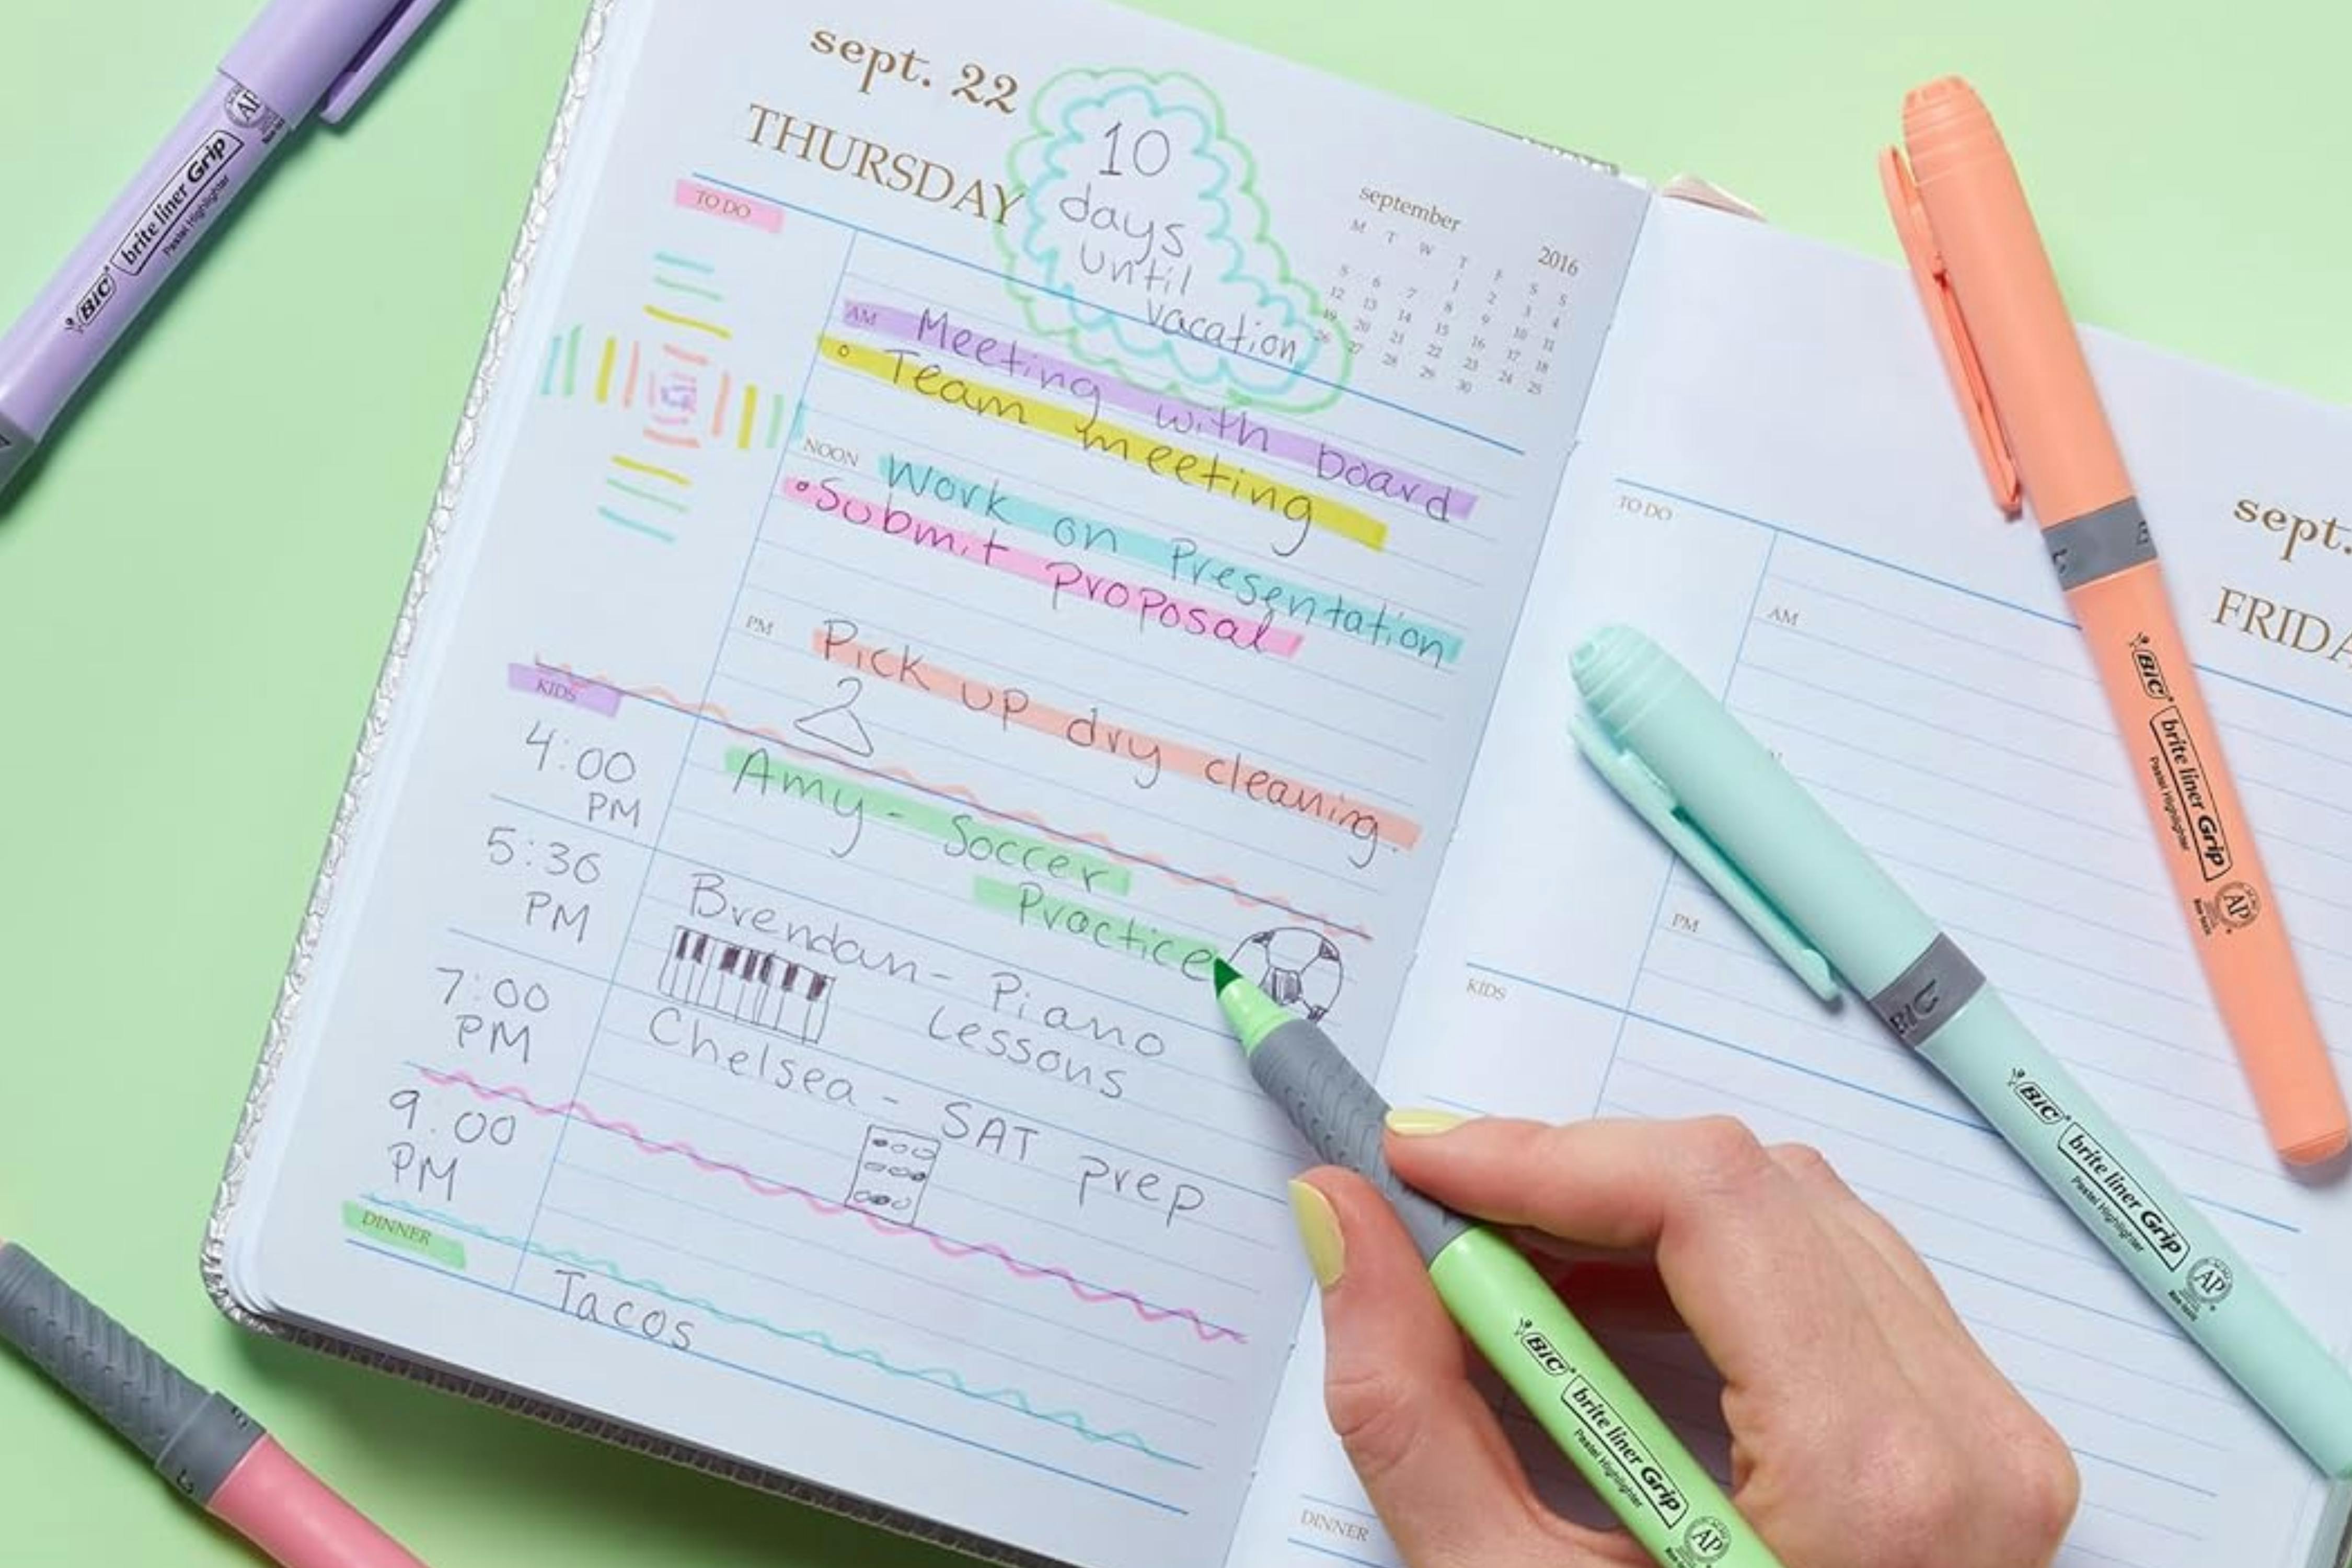 sept. 22
THURSDAY
10
days
until
vacation
september
2016
M T W T F S S
1 2 3 4
5 6 7 8 9 10 11
12 13 14 15 16 17 18
19 20 21 22 23 24 25
26 27 28 29 30
TO DO
AM Meeting with board
Team meeting
NOON Work on Presentation
Submit proposal
PM Pick up dry cleaning.
KIDS
4:00
PM
Amy - Soccer
Practice
5:30
PM
Brendan - Piano
Lessons
7:00
PM
Chelsea - SAT prep
9:00
PM
DINNER
Tacos
sept.
TO DO
AM
PM
KIDS
DINNER
BIC brite liner Grip
Pastel Highlighter
AP
BIC
BIC brite liner Grip
Pastel Highlighter
AP
BIC
BIC brite liner Grip
Pastel Highlighter
AP
BIC brite liner Grip
Pastel Highlighter
AP